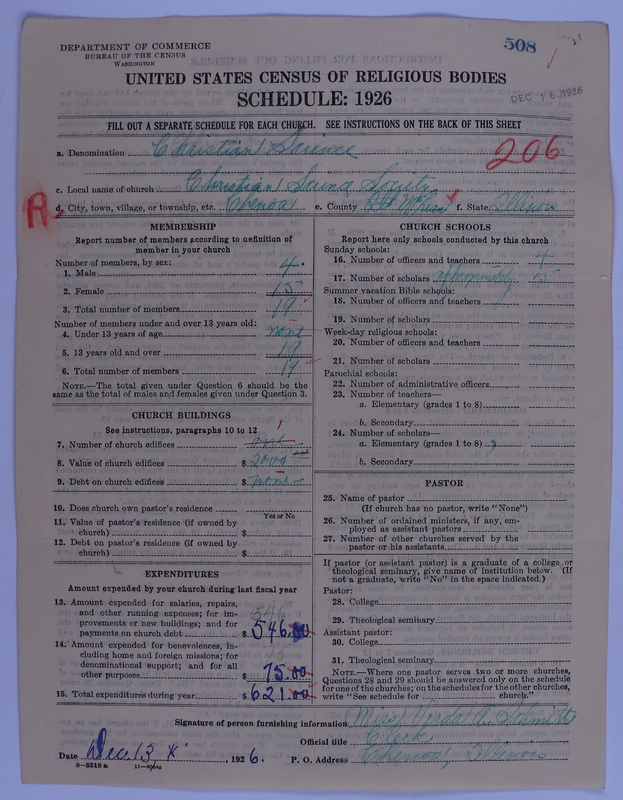 508
DEPARTMENT OF COMMERCE
BUREAU OF THE CENSUS
WASHINGTON
UNITED STATES CENSUS OF RELIGIOUS BODIES
SCHEDULE: 1926
DEC 16 1926
FILL OUT A SEPARATE SCHEDULE FOR EACH CHURCH. SEE INSTRUCTIONS ON THE BACK OF THIS SHEET
a. Denomination Christian Science 206
c. Local name of church Christian Science Society
R d. City, town, village, or township, etc. Chenoa e. County McLean f. State Illinois
MEMBERSHIP
Report number of members according to definition of
member in your church
Number of members, by sex:
1. Male 4
2. Female 15
3. Total number of members 19
Number of members under and over 13 years old:
4. Under 13 years of age none
5. 13 years old and over 19
6. Total number of members 19
NOTE.—The total given under Question 6 should be the
same as the total of males and females given under Question 3.
CHURCH BUILDINGS
See instructions, paragraphs 10 to 12
1
7. Number of church edifices one
8. Value of church edifices $ 2000
9. Debt on church edifices $ none
10. Does church own pastor's residence
Yes or No
11. Value of pastor's residence (if owned by
church) $
12. Debt on pastor's residence (if owned by
church) $
EXPENDITURES
Amount expended by your church during last fiscal year
13. Amount expended for salaries, repairs,
and other running expenses; for im-
provements or new buildings; and for
payments on church debt $ 546.00
546
14. Amount expended for benevolences, in-
cluding home and foreign missions; for
denominational support; and for all
other purposes $ 75.00
15. Total expenditures during year $ 621.00
CHURCH SCHOOLS
Report here only schools conducted by this church
Sunday schools:
16. Number of officers and teachers 4
17. Number of scholars approximately 15
Summer vacation Bible schools:
18. Number of officers and teachers
19. Number of scholars
Week-day religious schools:
20. Number of officers and teachers
21. Number of scholars
Parochial schools:
22. Number of administrative officers
23. Number of teachers—
a. Elementary (grades 1 to 8)
b. Secondary
24. Number of scholars—
a. Elementary (grades 1 to 8)
b. Secondary
PASTOR
25. Name of pastor
(If church has no pastor, write "None")
26. Number of ordained ministers, if any, em-
ployed as assistant pastors
27. Number of other churches served by the
pastor or his assistants
If pastor (or assistant pastor) is a graduate of a college or
theological seminary, give name of institution below. (If
not a graduate, write "No" in the space indicated.)
Pastor:
28. College
29. Theological seminary
Assistant pastor:
30. College
31. Theological seminary
NOTE.—Where one pastor serves two or more churches,
Questions 28 and 29 should be answered only on the schedule
for one of the churches; on the schedules for the other churches,
write "See schedule for church."
Signature of person furnishing information Miss Verda A.
Official title Clerk
Date Dec. 13, 1926. P. O. Address Chenoa, Illinois
3—5518 a